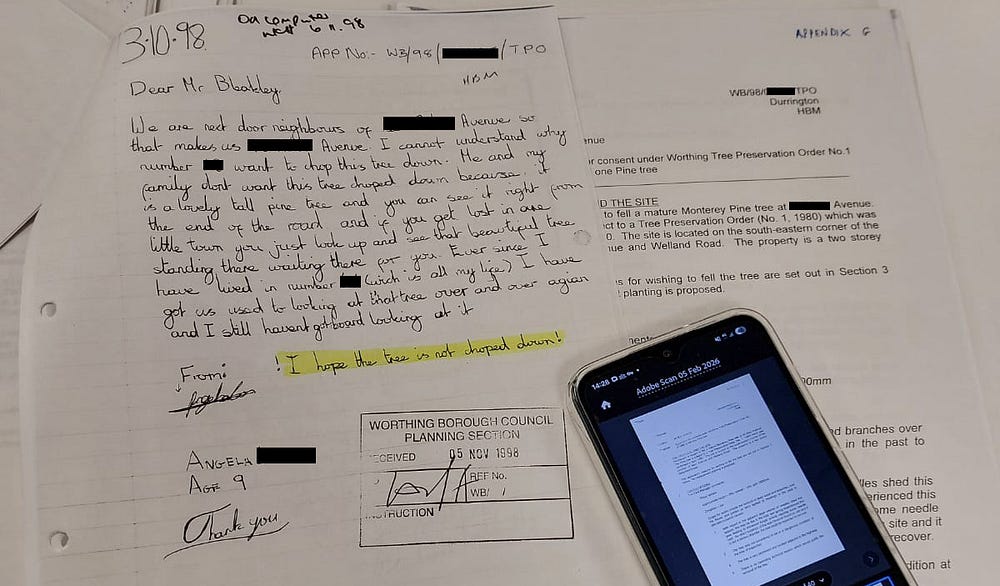 3.10.98
On computer
6.11.98
APP No:- WB/98/ /TPO
HBM
Dear Mr Bleakley,
We are next door neighbours of Avenue so
that makes us Avenue. I cannot understand why
number want to chop this tree down. Me and my
family dont want this tree choped down because, it
is a lovely tall pine tree and you can see it right from
the end of the road and if you get lost in are
little town you just look up and see that beautiful tree
standing there waiting there for you. Ever since I
have lived in number (wich is all my life) I have
got us used to looking at that tree over and over agian
and I still havent got board looking at it
! I hope the tree is not choped down!
From:
ANGELA
AGE 9
Thank you
WORTHING BOROUGH COUNCIL
PLANNING SECTION
ECEIVED 05 NOV 1998
REF No.
WB/ /
TRUCTION
APPENDIX G
WB/98/ TPO
Durrington
HBM
enue
r consent under Worthing Tree Preservation Order No.1
one Pine tree
D THE SITE
to fell a mature Monterey Pine tree at Avenue.
ct to a Tree Preservation Order (No. 1, 1980) which was
0. The site is located on the south-eastern corner of the
nue and Welland Road. The property is a two storey
s for wishing to fell the tree are set out in Section 3
t planting is proposed.
ments
00mm
d branches over
in the past to
dles shed this
erienced this
ome needle
site and it
recover.
ndition at
14:28
Adobe Scan 05 Feb 2026